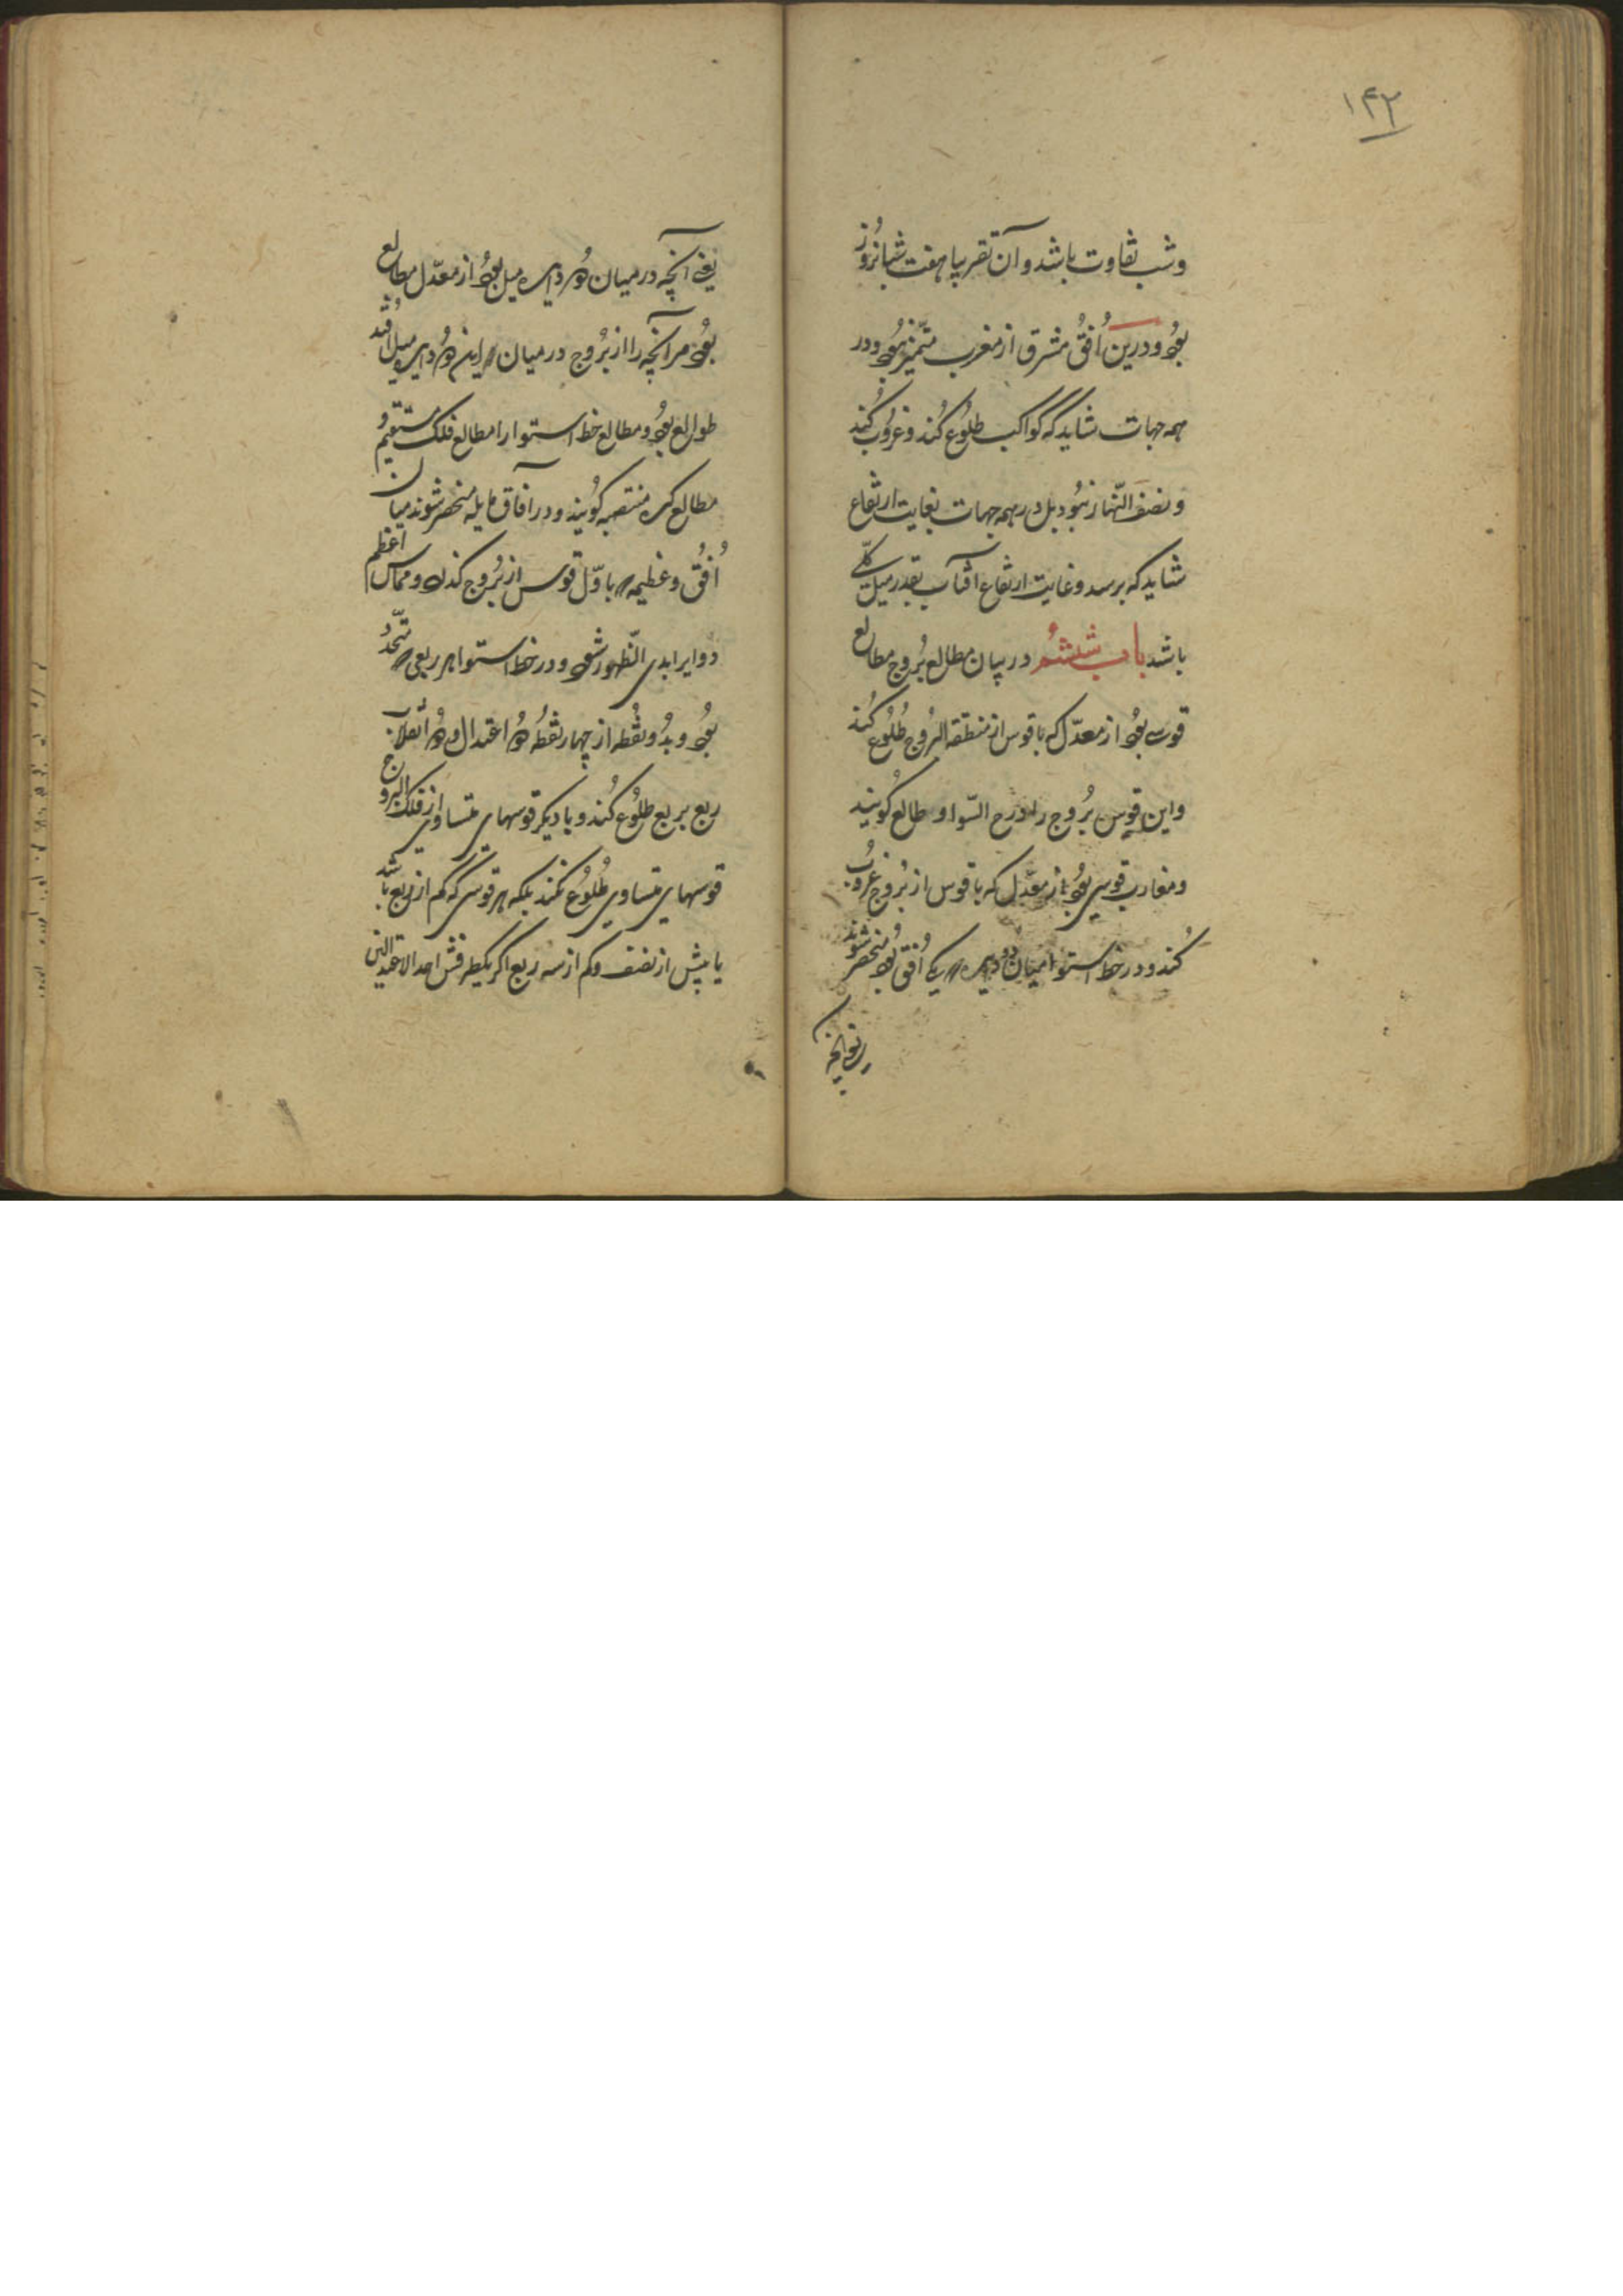 ۱۴۲
وشب تفاوت باشد و آن تقریبا هفت شبانروز
بود و درین اُفق مشرق از مغرب متمیّز نبود و در
همه جهات شاید که کواکب طلُوع کُند و غرُوب کُند
و نصف النّهار نبُود بل در همه جهات بغایت ارتفاع
شاید که برسد و غایت ارتفاع آفتاب بقدر میل کلّی
باشد باب ششُم در بیان مطالع بُروج مطالع
قوسی بود از معدّل که با قوس از منطقة البُروج طُلُوع کُند
و این قوس بُروج را درج السّوا و طالع گویند
و مغارب قوسی بود از معدّل که با قوس از بُروج غروُب
کُند و در خط استوا میان دو دایره که یکی اُفق بود منحصر شوند
یعنی آنچه
یعنی آنچه در میان دو دایره میل بود از معدّل مطالع
بود مر آنچه را از بُروج در میان این دو دایره میل اُفتد
طوالع بود و مطالع خط استوا را مطالع فلک مستقیم و
مطالع کره منتصبه کویند و در آفاق مایله منحصر شوند میان
اُفُق و عظیمه که باوّل قوس از بُروج گذرد و مماس اعظم
دوایر ابدی الظّهور شود و در خط استوا هر ربعی که متّحد
بود و بدُو نقُطه از چهار نقطُه دو اعتدال و دو انقلاب
ربع بربع طلُوع کُند و با دیکر قوسهای متساوی از فلک البروج
قوسهای متساوی طُلُوع نکند بلکه هر قوسی که کم از ربع باشد
یا بیش از نصف و کم از سه ربع اکر یکطرفش احد الاعتدالین